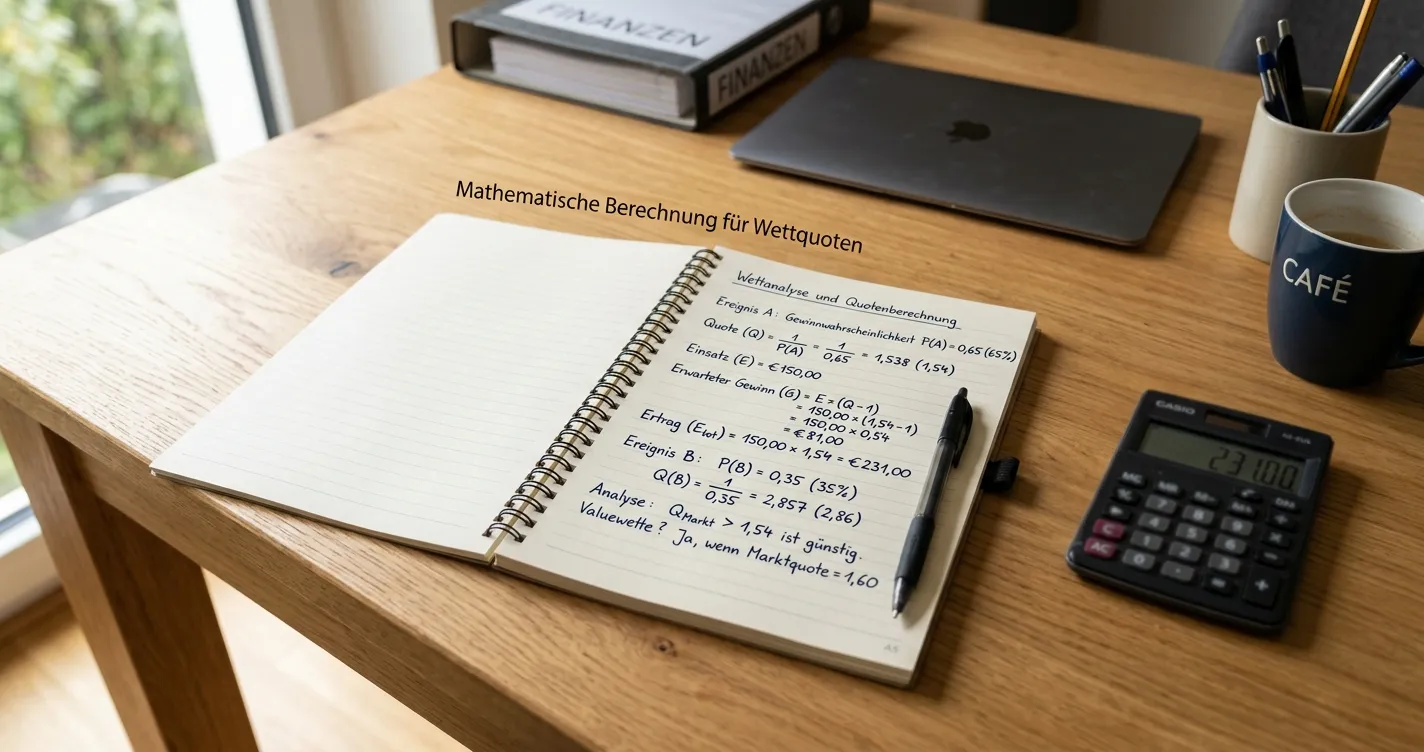 FINANZEN
FINANZEN
Mathematische Berechnung für Wettquoten
Wettanalyse und Quotenberechnung
Ereignis A: Gewinnwahrscheinlichkeit P(A) = 0,65 (65%)
Quote (Q) = 1/P(A) = 1/0,65 = 1,538 (1,54)
Einsatz (E) = €150,00
Erwarteter Gewinn (G) = E × (Q-1)
= 150,00 × (1,54-1)
= 150,00 × 0,54
= €81,00
Ertrag (Etot) = 150,00 × 1,54 = €231,00
Ereignis B: P(B) = 0,35 (35%)
Q(B) = 1/0,35 = 2,857 (2,86)
Analyse: QMarkt > 1,54 ist günstig.
Valuewette? Ja, wenn Marktquote = 1,60
A5
CAFÉ
CASIO
231.00
MC MR M-
% 7 8 9 ÷
C 4 5 6 ×
AC 1 2 3 -
0 +